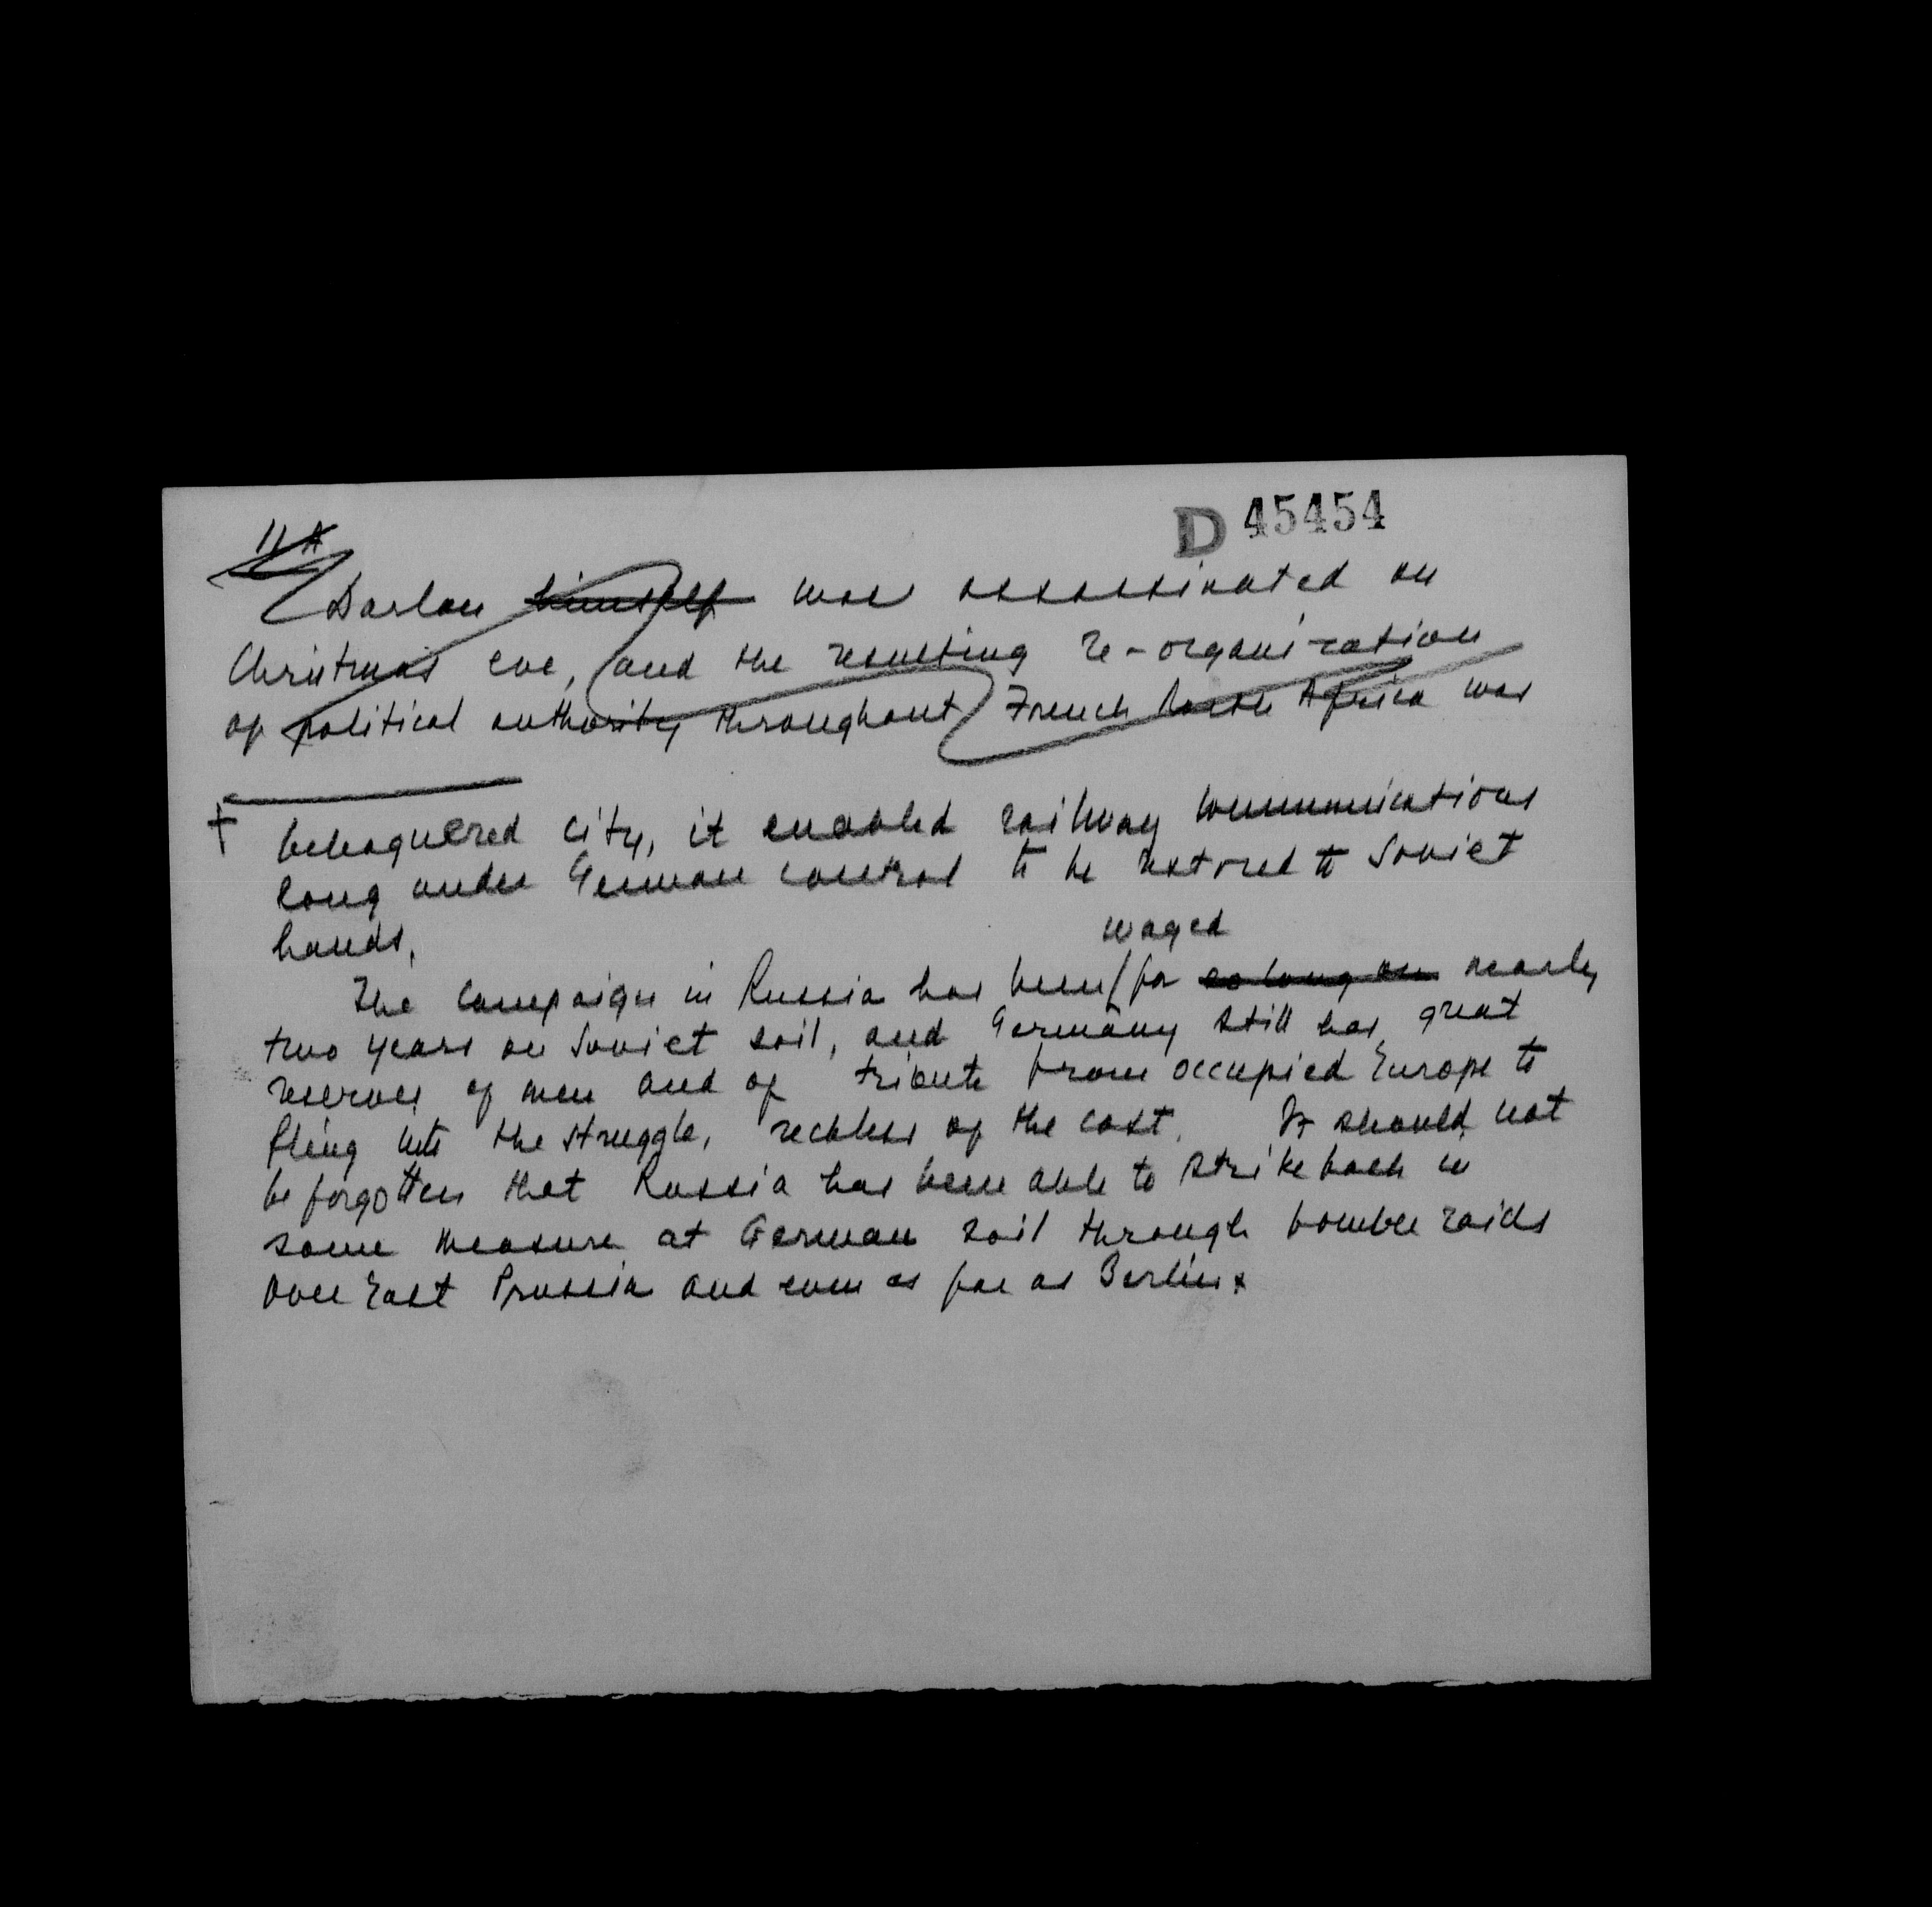 11A
D 45454
Darlan himself was assassinated on
Christmas eve, and the resulting re-organization
of political authority throughout French North Africa was
beleaguered city, it enabled railway communications
long under German control to be restored to Soviet
hands.
waged
The campaign in Russia has been / for so long on nearly
two years on Soviet soil, and Germany still has great
reserves of men and of tribute from occupied Europe to
fling into the struggle, reckless of the cost. It should not
be forgotten that Russia has been able to strike back in
some measure at German soil through bomber raids
over East Prussia and even as far as Berlin.